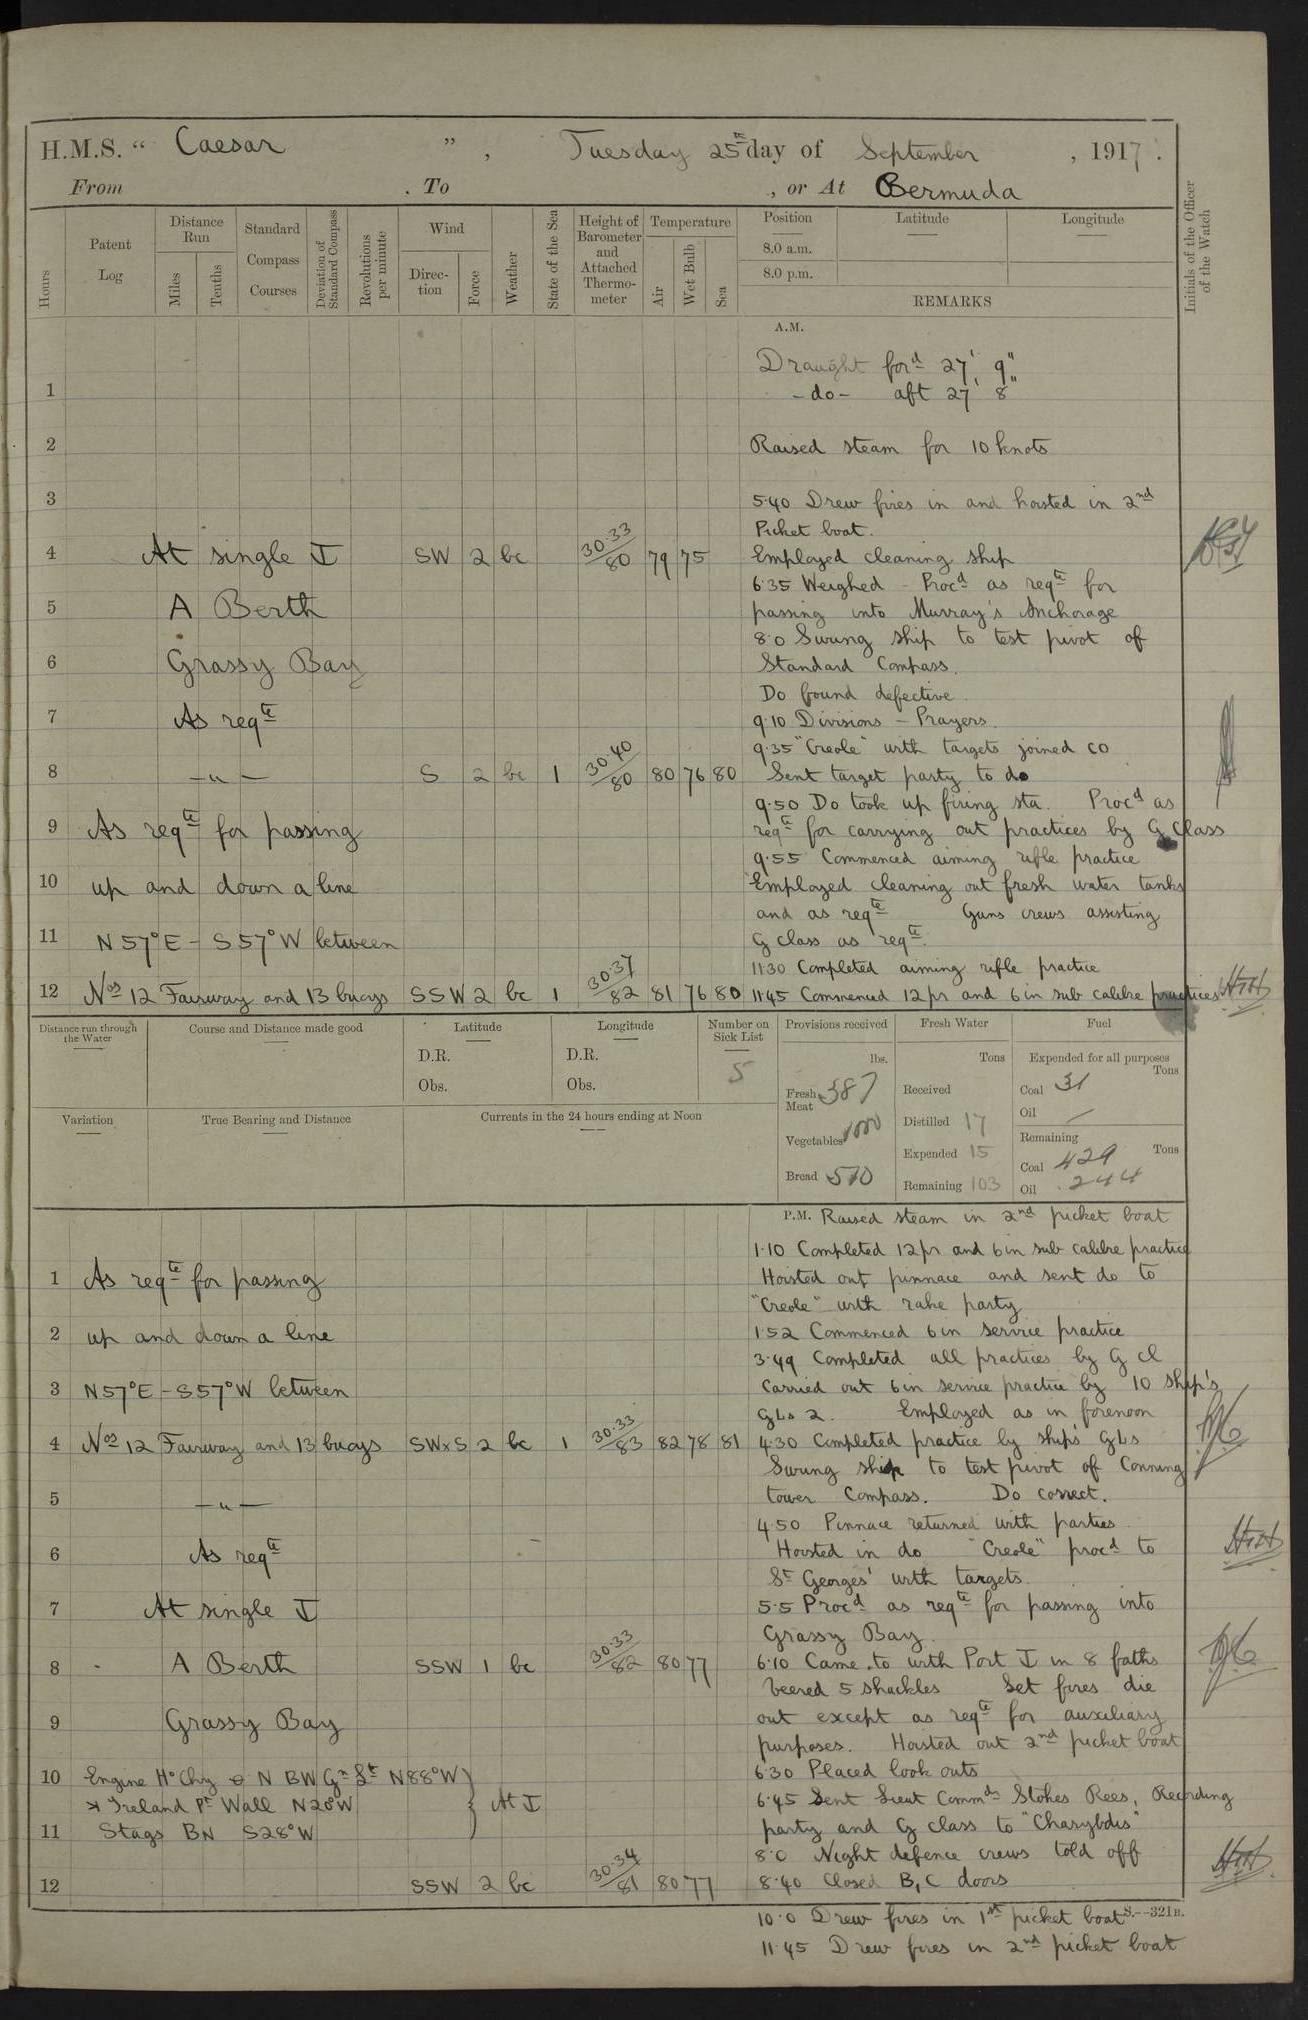 H.M.S. “ Caesar ” , Tuesday 25th day of September , 1917 .
From . To , or At Bermuda
Hours
Patent Log
Distance Run
Miles
Tenths
Standard Compass Courses
Deviation of Standard Compass
Revolutions per minute
Wind
Direc-tion
Force
Weather
State of the Sea
Height of Barometer and Attached Thermo-meter
Temperature
Air
Wet Bulb
Sea
Position
8.0 a.m.
8.0 p.m.
Latitude
Longitude
REMARKS
Initials of the Officer of the Watch
A.M.
Draught ford 27' 9"
1 -do- aft 27' 8"
2 Raised steam for 10 knots
3 5·40 Drew fires in and hoisted in 2nd
Picket boat.
4 At single I SW 2 bc 30·33/80 79 75 Employed cleaning ship
6·35 Weighed - Procd as reqte for
5 A Berth passing into Murray's Anchorage
8·0 Swung ship to test pivot of
6 Grassy Bay Standard Compass.
Do found defective.
7 As reqte 9·10 Divisions - Prayers.
9·35 "Creole" with targets joined co
8 -"- S 2 bc 1 30·40/80 80 76 80 Sent target party to do
9·50 Do took up firing sta. Procd as
9 As reqte for passing reqte for carrying out practices by G Class
9·55 Commenced aiming rifle practice
10 up and down a line Employed cleaning out fresh water tanks
and as reqte Guns crews assisting
11 N 57° E - S 57° W between G class as reqte.
11·30 Completed aiming rifle practice
12 Nos 12 Fairway and 13 buoys SSW 2 bc 1 30·37/82 81 76 80 11·45 Commenced 12 pr and 6 in sub calibre practices
Distance run through the Water
Course and Distance made good
Latitude
D.R.
Obs.
Longitude
D.R.
Obs.
Number on Sick List
5
Provisions received
lbs.
Fresh Meat 387
Vegetables 1000
Bread 510
Fresh Water
Tons
Received
Distilled 17
Expended 15
Remaining 103
Fuel
Expended for all purposes
Tons
Coal 31
Oil /
Remaining
Tons
Coal 429
Oil 244
Variation
True Bearing and Distance
Currents in the 24 hours ending at Noon
P.M. Raised steam in 2nd picket boat
1·10 Completed 12 pr and 6 in sub calibre practice
1 As reqte for passing Hoisted out pinnace and sent do to
"Creole" with rake party
2 up and down a line 1·52 Commenced 6 in service practice
3·49 Completed all practices by G Cl
3 N 57° E - S 57° W between Carried out 6 in service practice by 10 ship's
GLs 2. Employed as in forenoon
4 Nos 12 Fairway and 13 buoys SWxS 2 bc 1 30·33/83 82 78 81 4·30 Completed practice by ships GLs
Swung ship to test pivot of Conning
5 -"- tower Compass. Do correct.
4·50 Pinnace returned with parties
6 As reqte Hoisted in do "Creole" procd to
St Georges' with targets.
7 At single I 5·5 Procd as reqte for passing into
Grassy Bay.
8 A Berth SSW 1 bc 30·33/82 80 77 6·10 Came to with Port I in 8 faths
Veered 5 shackles Let fires die
9 Grassy Bay out except as reqte for auxiliary
purposes. Hoisted out 2nd picket boat
10 Engine Ho Chy N BW Gn Lt N 88° W 6·30 Placed look outs
Ireland Pt Wall N 20° W } At I 6·45 Sent Lieut Commdr Stokes Rees, Recording
11 Stags BN S 28° W party and G class to "Charybdis"
8·0 Night defence crews told off
12 SSW 2 bc 30·34/81 80 77 8·40 Closed B, C doors
10·0 Drew fires in 1st picket boat S.--321B.
11·45 Drew fires in 2nd picket boat